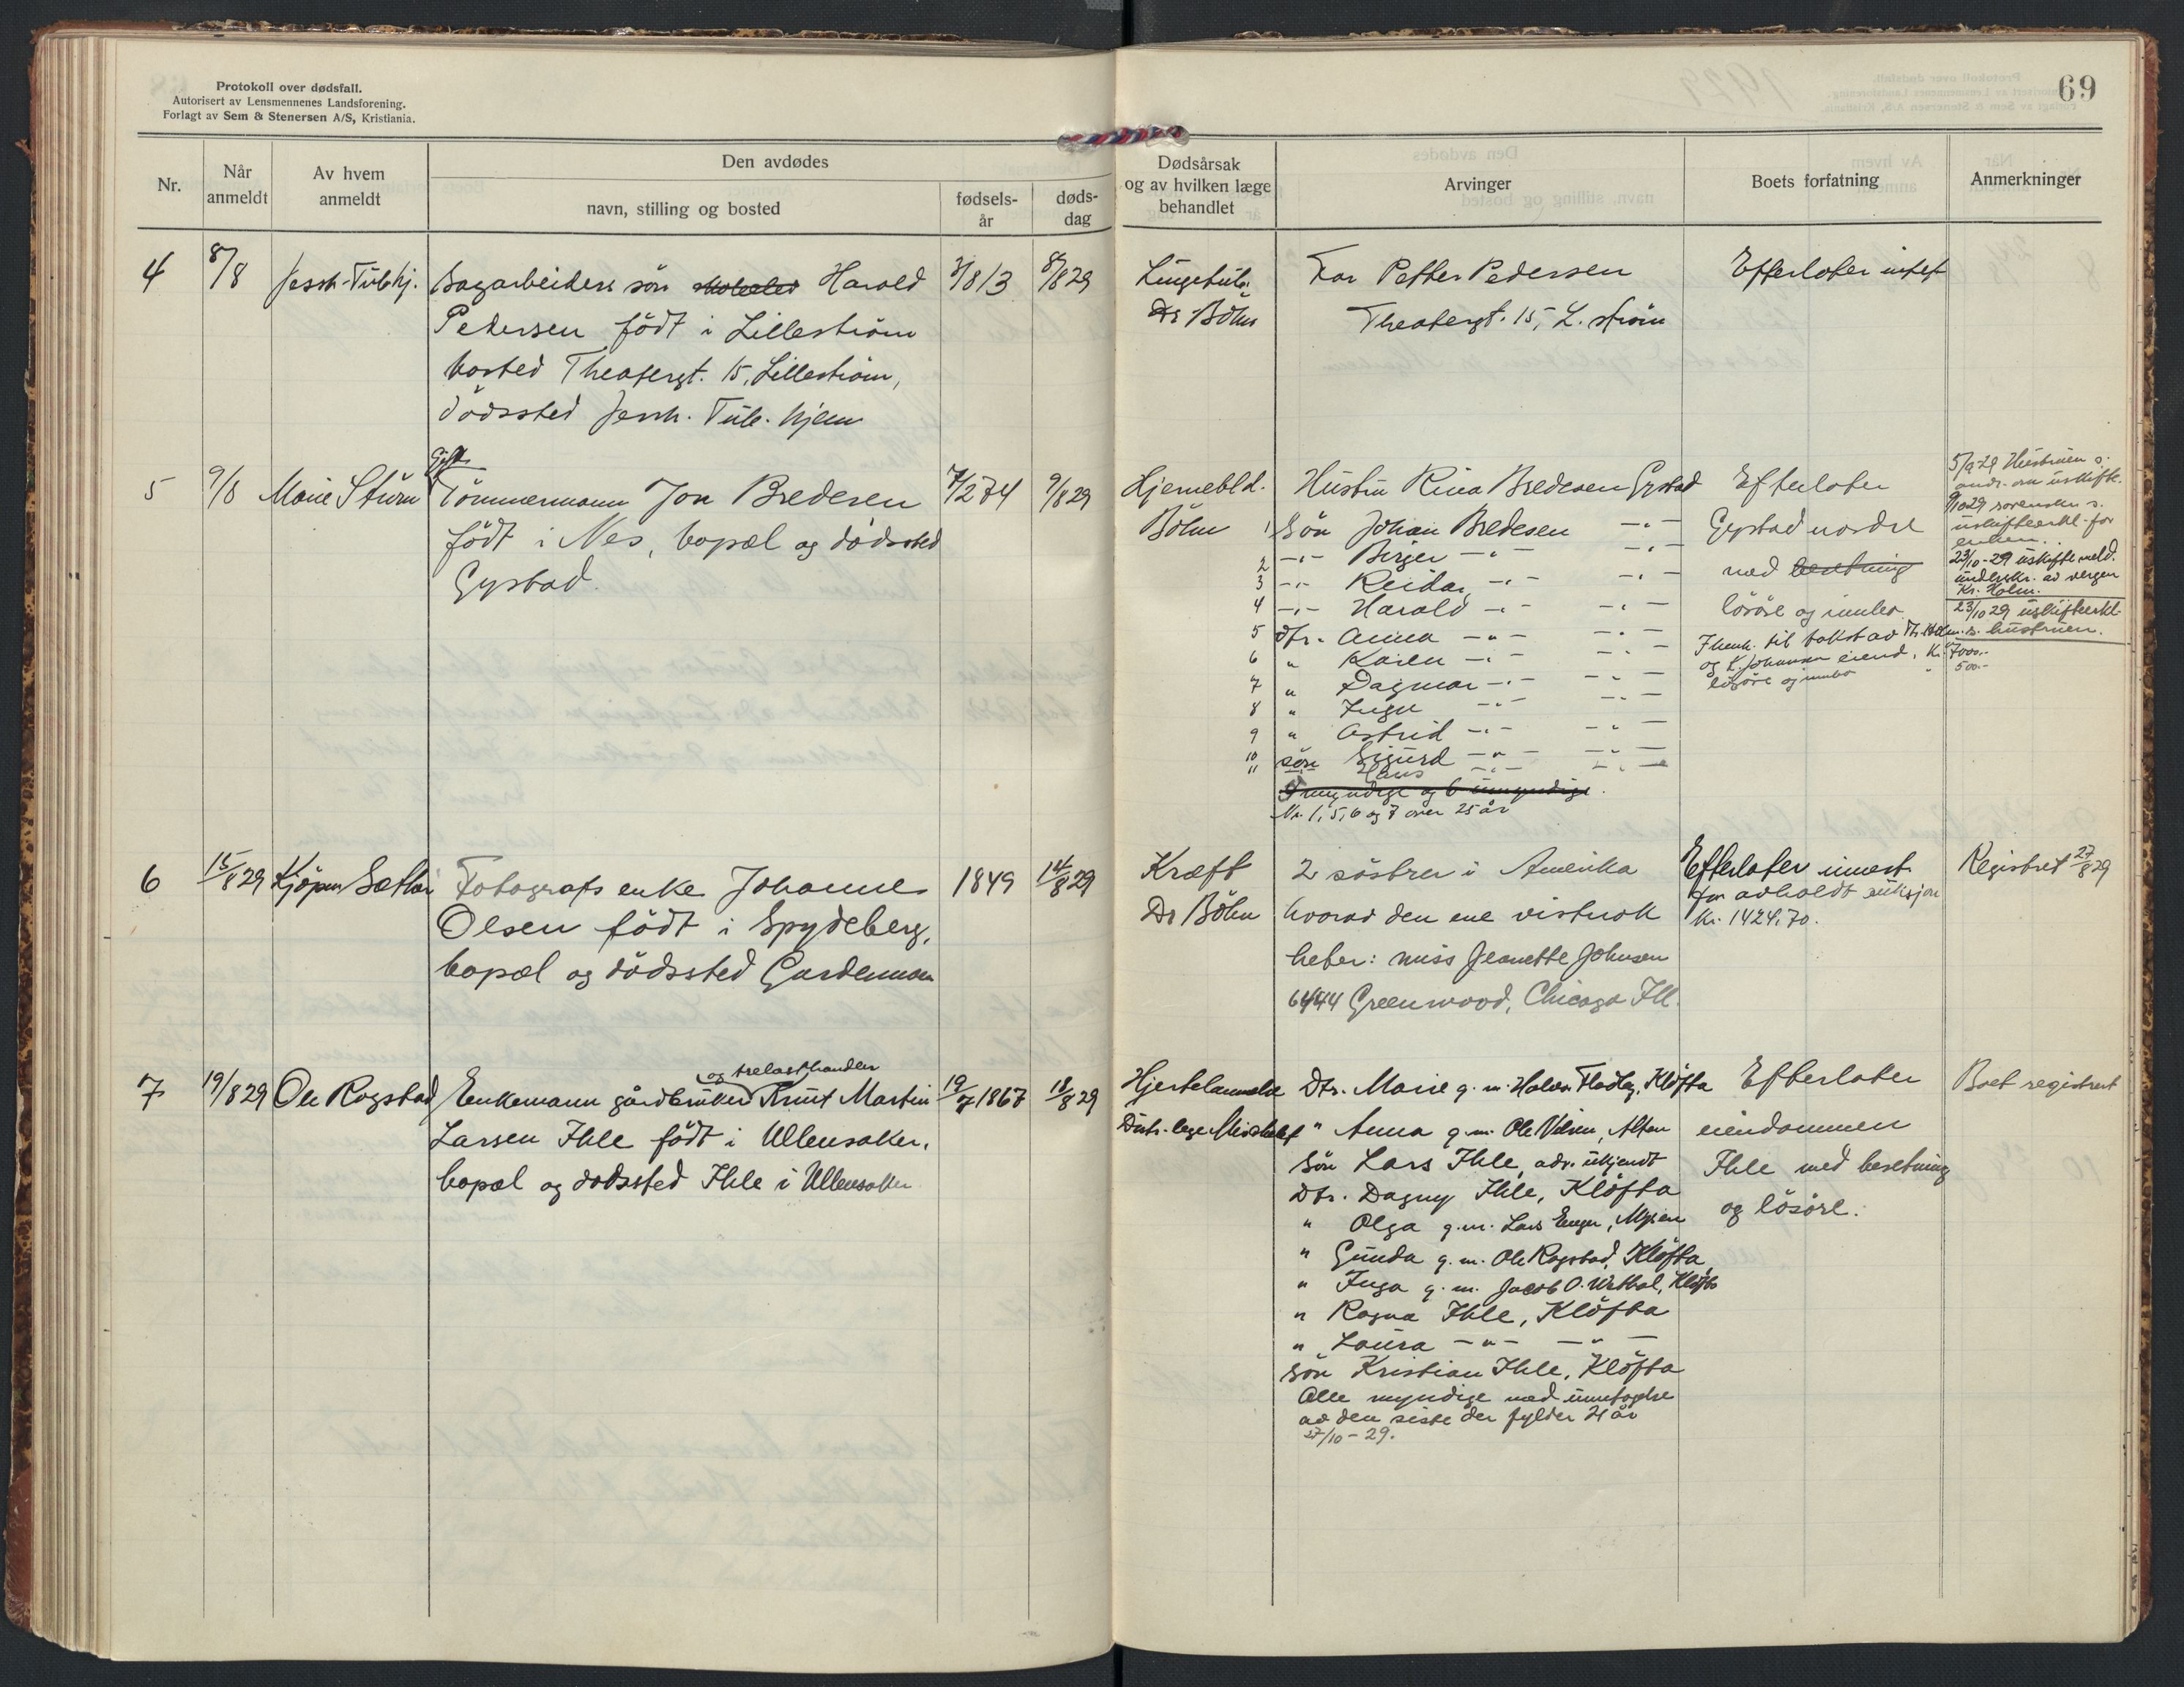 Protokoll over dødsfall.
Autorisert av Lensmennenes Landsforening.
Forlagt av Sem & Stenersen A/S, Kristiania.
69
Nr.
Når
anmeldt
Av hvem
anmeldt
Den avdødes
navn, stilling og bosted
fødsels-
år
døds-
dag
Dødsårsak
og av hvilken læge
behandlet
Arvinger
Boets forfatning
Anmerkninger
4
8/8
Jessh. Tub.hj.
Sagarbeiders sön Harald
Pedersen födt i Lilleström
bosted Theatergt. 15, Lilleström,
dödssted Jessh. Tub. hjem
8/8 29
Lungetub.
Dr Böhn
Far Petter Pedersen
Theatergt. 15, L. ström
Efterlater intet
5
9/8
Marie Sturn
Gift
Tömmermann Jon Bredesen
födt i Nes, bopæl og dödssted
Gystad.
7/2 74
9/8 29
Hjerneblö.
Böhn
Hustru Rina Bredesen Gystad
1 Sön Johan Bredesen -"-
2 -"- Birger -"- -"-
3 -"- Reidar -"- -"-
4 -"- Harald -"- -"-
5 dtr. Anna -"- -"-
6 " Karen -"- -"-
7 " Dagmar -"- -"-
8 " Inger -"- -"-
9 " Astrid -"- -"-
10 sön Sigurd -"- -"-
11 Hans -"- -"-
5 myndige og 6 umyndige.
Nr. 1, 5, 6 og 7 over 25 år
Efterlater
Gystad nordre
med besetning
lösöre og innbo
I henh. til takst av Th. Holm
og K. Johansen eiend. kr. 7000.-
lösöre og innbo " 500.-
5/9-29 Hustruen s.
andr. om uskifte.
9/10 29 sorenskr s.
uskifteerkl. for
enken.
23/10-29 uskiftemeld.
underskr. av vergen
Kr. Holm.
23/10 29 uskifteerkl.
s. hustruen.
6
15/8 29
Kjöpm Sæther
Fotografs enke Johanne
Olsen födt i Spydeberg,
bopæl og dödssted Gardermoen
1849
14/8 29
Kræft
Dr Böhn
2 söstrer i Amerika
hvorav den ene vistnok
heter: miss Jeanette Johnsen
6444 Greenwood, Chicago Ill.
Efterlater innest.
for avholdt auksjon
kr. 1424,70.
Registret 27/8 29
7
19/8 29
Ole Ragstad
og trelasthandler
Enkemann gårdbruker Knut Martin
Larsen Ihle födt i Ullensaker,
bopæl og dödssted Ihle i Ullensaker
19/7 1867
18/8 29
Hjertelammelse
Distr. lege
Dtr. Marie g. m. Halvor Fladby, Klöfta
" Anna g. m. Ole Nilsen, Alten
Sön Lars Ihle, adr. ukjendt
Dtr. Dagny Ihle, Klöfta
" Olga g. m. Lars Enger, Mysen
" Gunda g. m. Ole Ragstad, Klöfta
" Inga g. m. Jacob O. Vestbal, Klöfta
" Ragna Ihle, Klöfta
" Laura -"- -"-
Sön Kristian Ihle, Klöfta
Alle myndige med unntagelse
av den siste der fylder 21 år
27/10-29.
Efterlater
eiendommen
Ihle med besetning
og lösöre.
Boet registrert